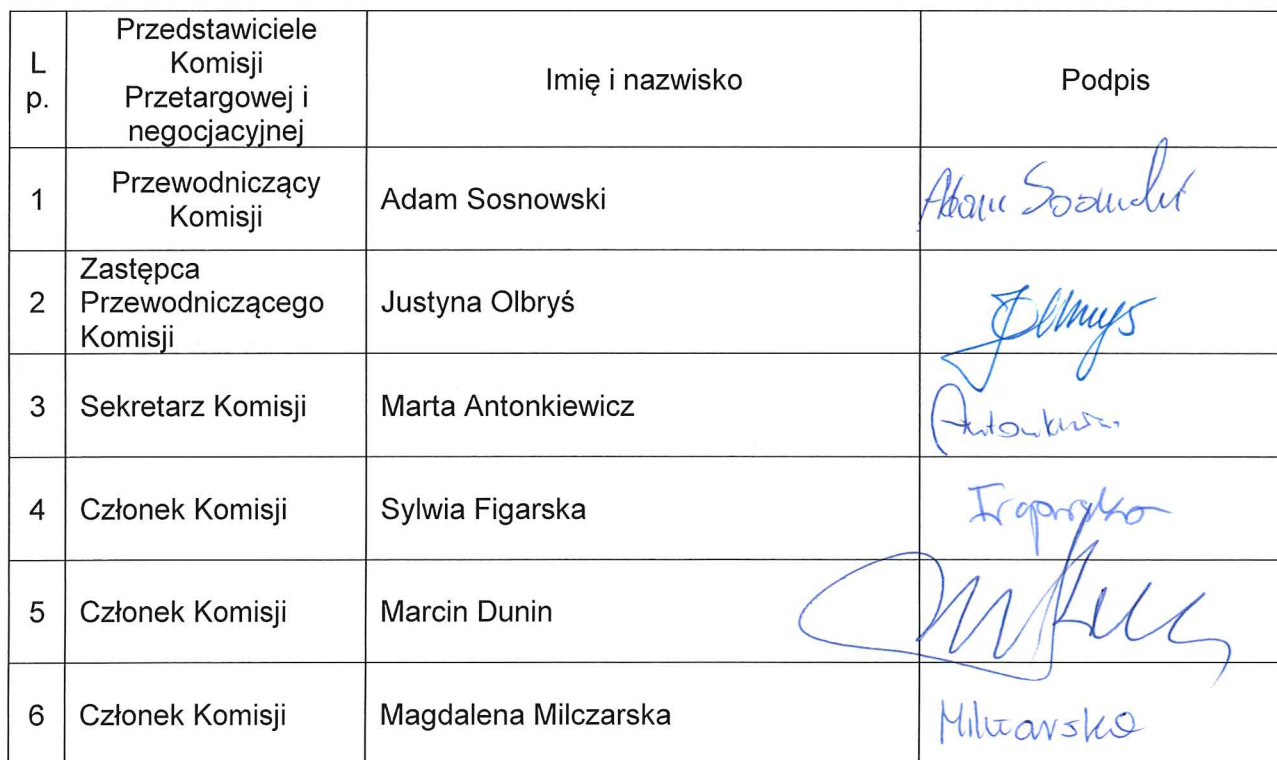 L
p.
Przedstawiciele
Komisji
Przetargowej i
negocjacyjnej
Imię i nazwisko
Podpis
1
Przewodniczący
Komisji
Adam Sosnowski
Adam
2
Zastępca
Przewodniczącego
Komisji
Justyna Olbryś
3
Sekretarz Komisji
Marta Antonkiewicz
4
Członek Komisji
Sylwia Figarska
5
Członek Komisji
Marcin Dunin
6
Członek Komisji
Magdalena Milczarska